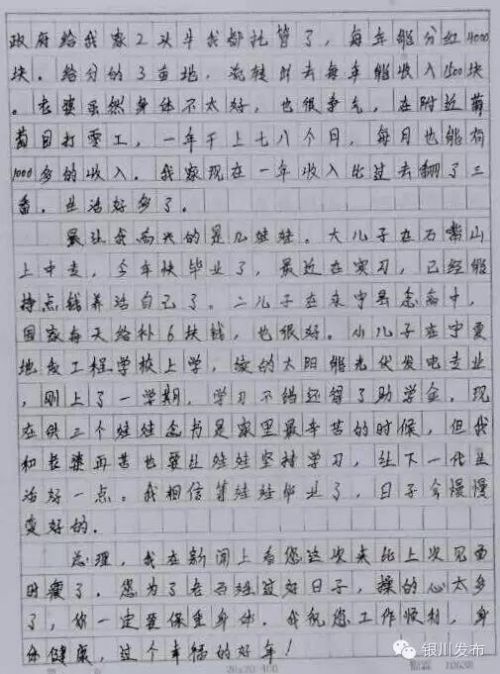 政府给我家2头牛我都托管了，每年能分红4000
块。给分的3亩地，流转出去每年能收入1500块
。老婆虽然身体不太好，也很争气，在附近葡
萄园打零工，一年干上七八个月，每月也能有
1000多的收入。我家现在一年收入比过去翻了三
番，生活好多了。
最让我高兴的是几娃娃。大儿子在石嘴山
上中专，今年快毕业了，最近在实习，已经能
挣点钱养活自己了。二儿子在永宁县念高中，
国家每天给补6块钱，也很好。小儿子在宁夏
地矿工程学校上学，读的太阳能光伏发电专业
，刚上了一学期，学习不错还得了助学金。现
在供三个娃娃念书是家里最辛苦的时候，但我
和老婆再苦也要让娃娃坚持学习，让下一代生
活好一点。我相信等娃娃毕业了，日子会慢慢
变好的。
总理，我在新闻上看您这次来比上次见面
时瘦了。您为了老百姓过好日子，操的心太多
了，你一定要保重身体。我祝您工作顺利，身
体健康，过个幸福的好年！
20×20=400
银川发布